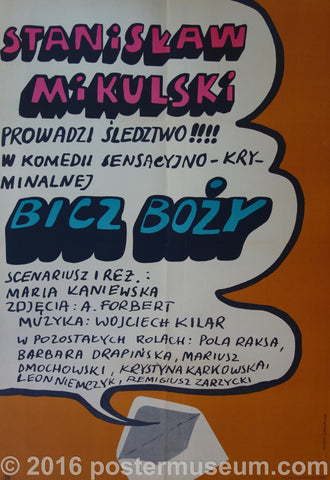 STANISŁAW
MIKULSKI
PROWADZI ŚLEDZTWO!!!!
W KOMEDII SENSACYJNO-KRY-
MINALNEJ
BICZ BOŻY
SCENARIUSZ I REŻ.:
MARIA KANIEWSKA
ZDJĘCIA: A. FORBERT
MUZYKA: WOJCIECH KILAR
W POZOSTAŁYCH ROLACH: POLA RAKSA,
BARBARA DRAPIŃSKA, MARIUSZ
DMOCHOWSKI, KRYSTYNA KARKOWSKA,
LEON NIEMCZYK, REMIGIUSZ ZARZYCKI
© 2016 postermuseum.com